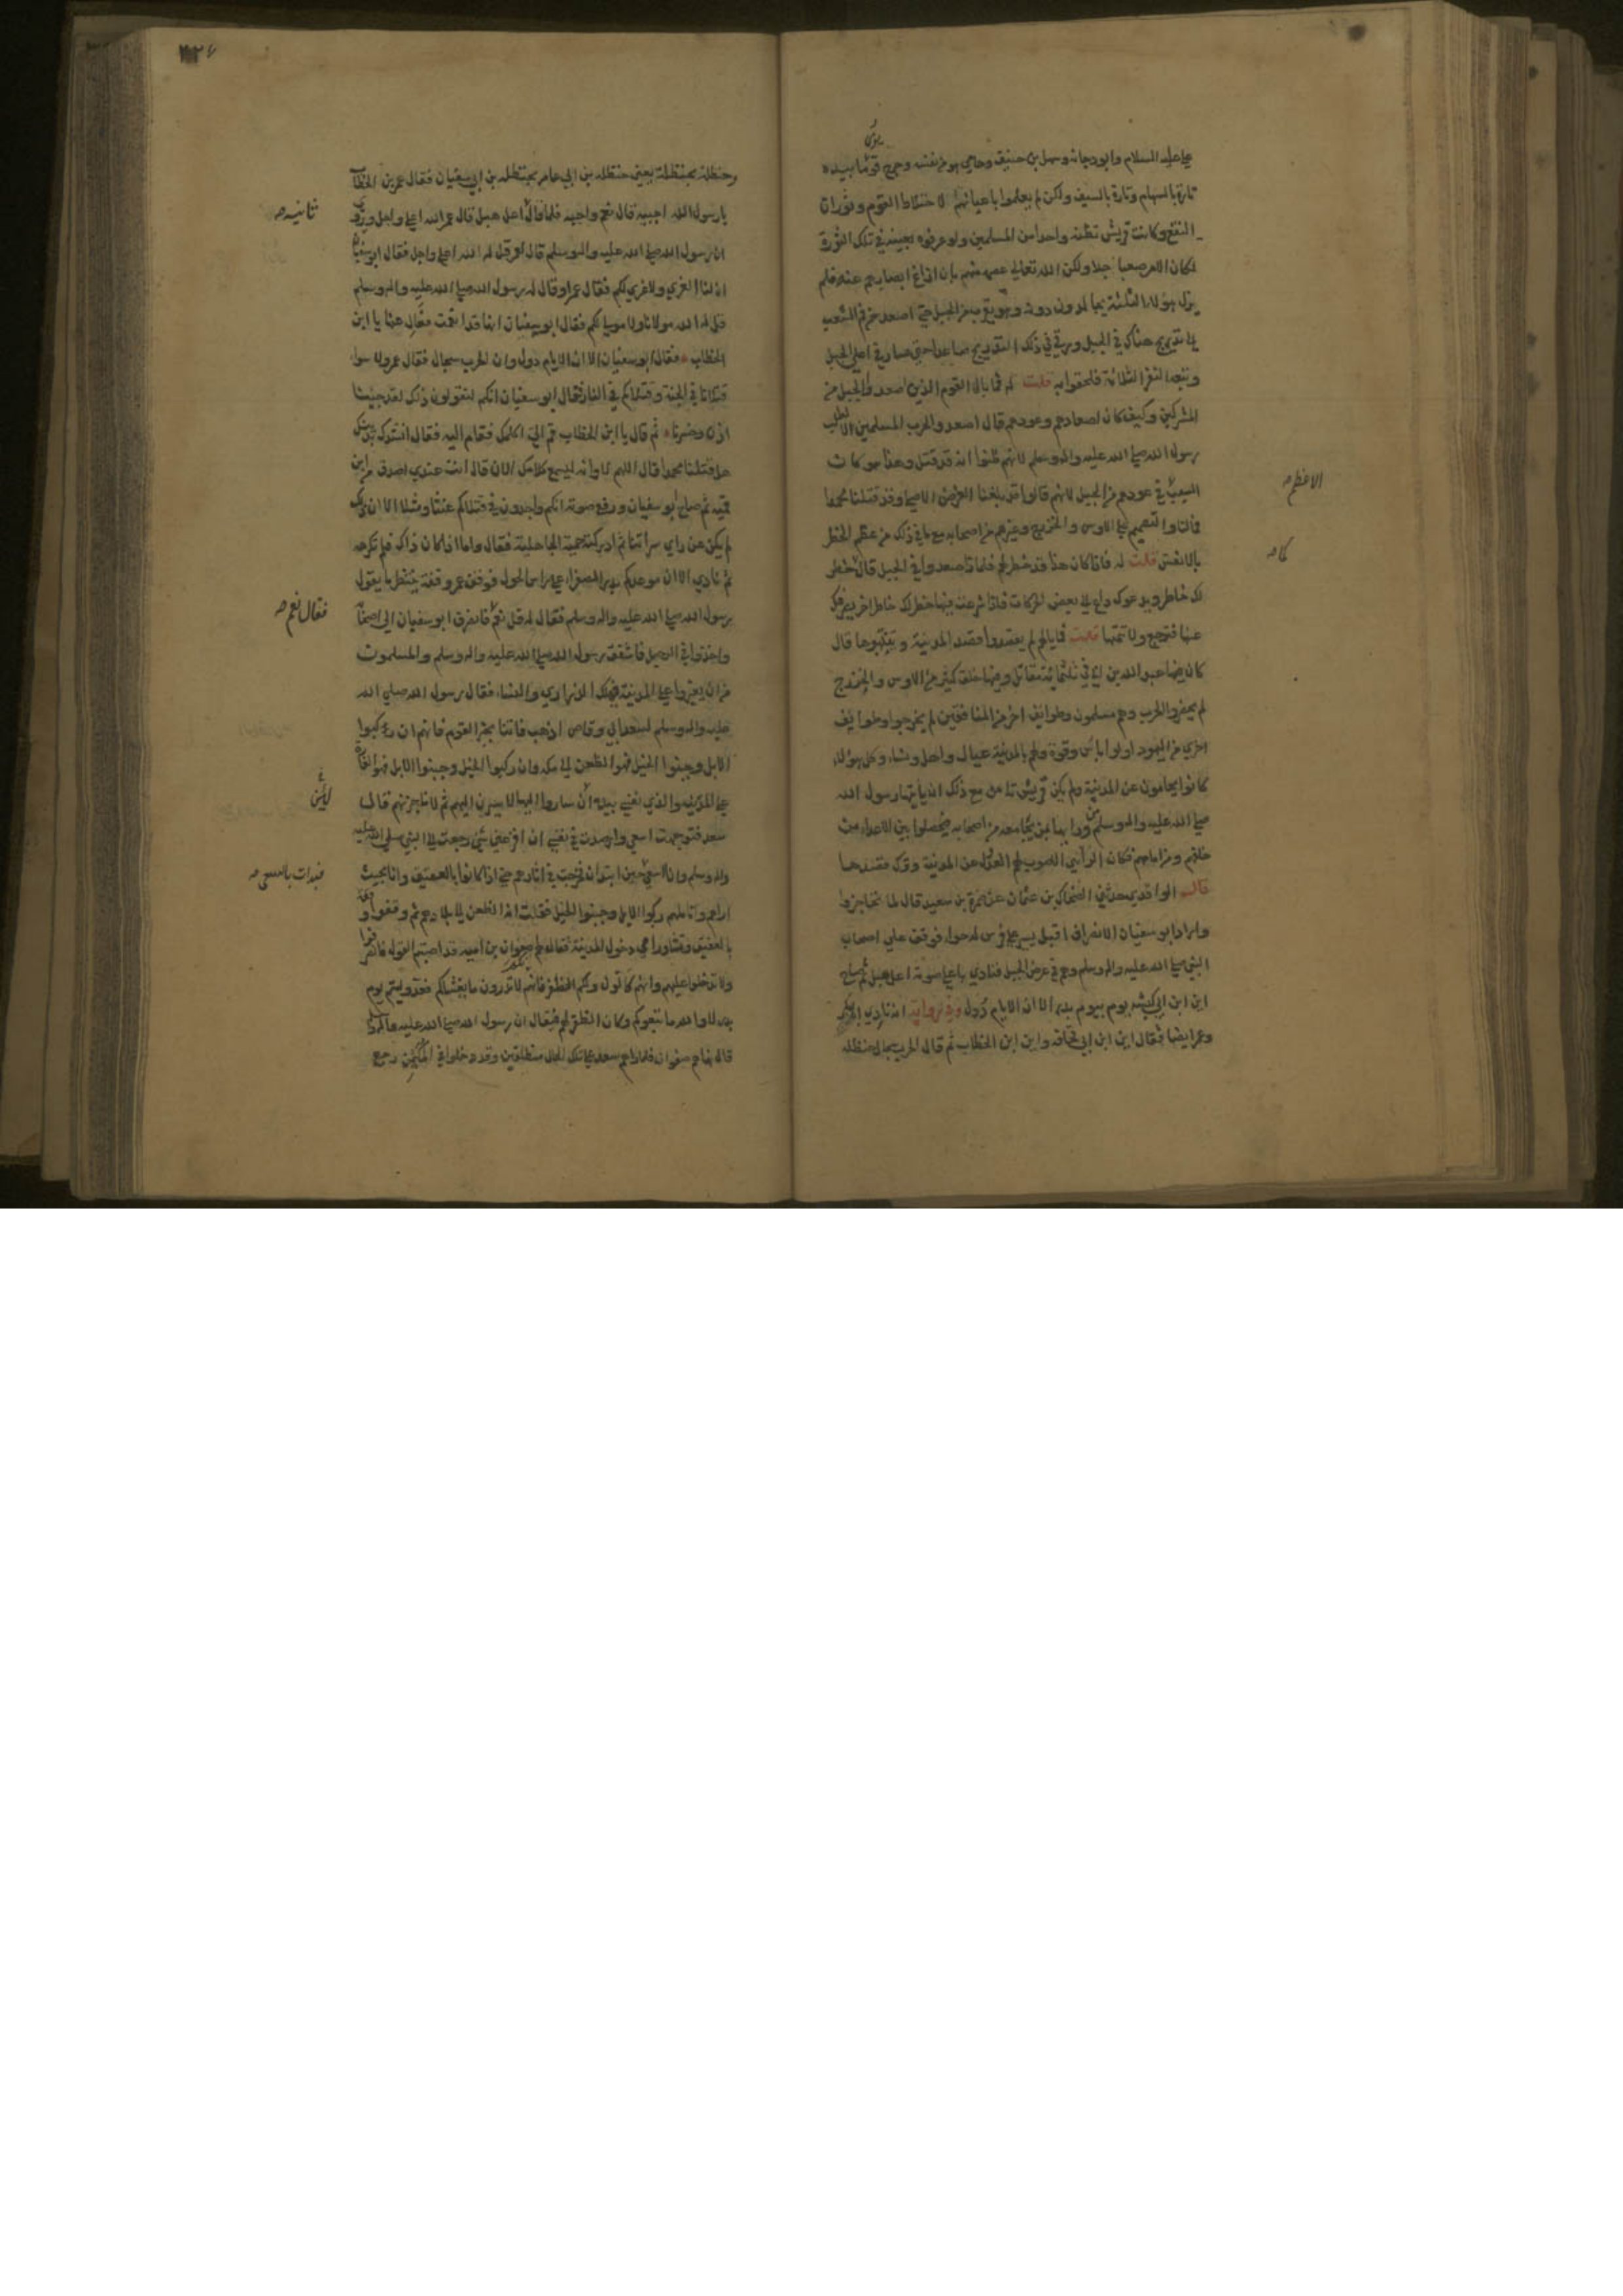 علي عليه السلام وابو دجانة وسهل بن حنيف وحامي هو عن نفسه وجرح قوما بيده
تارة بالسهام وتارة بالسيف ولكن لم يعلموا باعيانهم لاختلاط القوم وثوران
النقع وكانت قريش تظنه واحدا من المسلمين ولو عرفوه بعينه في تلك الثورة
لكان الامر صعبا جدا ولكن الله تعالي عصمه منهم بان ازاغ ابصارهم عنه فلم
يزل هؤلاء الثلثة يجالدون دونه وهو يقرب من الجبل حتي اصعد من فم الشعب
الي تدريج هناك في الجبل ورقي في ذلك التدريج صاعدا حتي صار في اعلي الجبل
وتبعه النفر الثلاثة فلحقوا به قلت له فما بال القوم الذين اصعدوا الجبل من
المشركين وكيف كان اصعادهم وعودهم قال اصعدوا لحرب المسلمين لا لطلب
رسول الله صلي الله عليه واله وسلم لانهم ظنوا انه قد قتل وهذا هو كان
السبب في عودهم من الجبل لانهم قالوا قد بلغنا الغرض الاصلي وقد قتلنا محمدا
فما لنا والتصميم علي الاوس والخزرج وغيرهم من اصحابه مع ما في ذلك من عظم الخطر
الاعظم صح
بالانفس قلت له فاذا كان هذا قد خطر لهم فلماذا صعدوا في الجبل قال يخطر
كما صح
لك خاطر ويدعوك داع الي بعض الحركات فاذا شرعت فيها خطر لك خاطر اخر يصرفك
عنها فترجع ولا تتمها قلت فما بالهم لم يقصدوا قصد المدينة وينهبوها قال
كان فيها عبد الله بن ابي في ثلثمائة مقاتل وفيها خلق كثير من الاوس والخزرج
لم يحضروا الحرب وهم مسلمون وطوايف اخر من المنافقين لم يخرجوا وطوايف
اخري من اليهود اولوا باس وقوة ولهم بالمدينة عيال واهل ونساء وكل هؤلاء
كانوا يحامون عن المدينة ولم يكن قريش تامن مع ذلك ان ياتيها رسول الله
صلي الله عليه واله وسلم من ورايها بمن يجامعه من اصحابه فيحصلوا بين الاعداء من
خلفهم ومن امامهم فكان الراي الاصوب لهم العدول عن المدينة وترك قصدها
قال الواقدي حدثني الضحاك بن عثمان عن حمزة بن سعيد قال لما تحاجزوا
واراد ابو سفيان الانصراف اقبل يسير علي فرس له حواء فوقف علي اصحاب
النبي صلي الله عليه واله وسلم وهم في عرض الجبل فنادي باعلي صوته اعل هبل ثم صاح
اين ابن ابي كبشه يوم بيوم بدر الا ان الايام دول وفي رواية انه نادي ابا بكر
وعمر ايضا فقال اين ابن ابي قحافه واين ابن الخطاب ثم قال الحرب سجال حنظله
وحنظلة بحنظلة يعني حنظله بن ابي عامر بحنظله بن ابي سفيان فقال عمر بن الخطاب
يا رسول الله اجيبه قال نعم واجبه فلما قال اعل هبل قال عمر الله اعلي واجل
ثانية صح
ان رسول الله صلي الله عليه واله وسلم قال لعمر قل له الله اعلي واجل فقال ابو سفيان
ان لنا العزي ولا عزي لكم فقال عمر او قال له رسول الله صلي الله عليه واله وسلم
قل له الله مولانا ولا مولي لكم فقال ابو سفيان انها قد انعمت فعال عنها يا ابن
الخطاب فقال ابو سفيان الا ان الايام دول وان الحرب سجال فقال عمر ولا سواء
قتلانا في الجنة وقتلاكم في النار فقال ابو سفيان انكم لتقولون ذلك لقد خبنا
اذن وخسرنا ثم قال يا ابن الخطاب قم الي اكلمك فقام اليه فقال انشدك بدينك
هل قتلنا محمدا قال اللهم لا وانه ليسمع كلامك الان قال انت عندي اصدق من ابن
قميه ثم صاح ابو سفيان ورفع صوته انكم واجدون في قتلاكم عنتا ومثلا الا ان ذلك
لم يكن عن راي سراتنا ثم ادركته حمية الجاهلية فقال واما اذ كان ذاك فلم نكرهه
ثم نادي الا ان موعدكم بدر الصفراء علي راس الحول فوقف عمر وقفة ينتظر ما يقول
رسول الله صلي الله عليه واله وسلم فقال له قل نعم فانصرف ابو سفيان الي اصحابه
فقال نعم صح
واخذوا في الرحيل فاشفق رسول الله صلي الله عليه واله وسلم والمسلمون
من ان يغيروا علي المدينة فيهلك الذراري والنساء فقال رسول الله صلي الله
عليه واله وسلم لسعد ابي وقاص اذهب فاتنا بخبر القوم فانهم ان ركبوا
الابل وجنبوا الخيل فهو الظعن الي مكه وان ركبوا الخيل وجنبوا الابل فهو الغارة
علي المدينه والذي نفسي بيده ان ساروا اليها لاسيرن اليهم ثم لاناجزنهم قال
لئن
سعد فتوجهت اسعي وارصدت في نفسي ان افزعني شي رجعت الي النبي صلي الله عليه
واله وسلم وانا اسعي حين ابتدات فخرجت في اثارهم حتي اذا كانوا بالعقيق وانا بحيث
فبدات بالسعي صح
اراهم واتاملهم ركبوا الابل وجنبوا الخيل فقلت انه الظعن الي بلادهم ثم وقفوا وقفة
بالعقيق وتشاوروا في دخول المدينة فقال لهم صفوان بن اميه قد اصبتم القوم فانصرفوا
ولا تدخلوا عليهم وانتم كالون ولكم الظفر فانكم لا تدرون ما يغشاكم فقد وليتم يوم
بدر لا والله ما تبعوكم وكان الظفر لهم فيقال ان رسول الله صلي الله عليه واله وسلم
قال نهاهم صفوان فلما راهم سعد علي تلك الحال منطلقين وقد دخلوا في المكيمن رجع